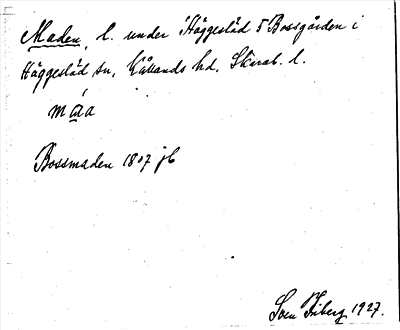 Maden, l. under Häggesled 5 Bossgården i
Häggesled sn, Kållands hd, Skarab. l.
måa
Bossmaden 1807 jb
Sven Friberg 1927.